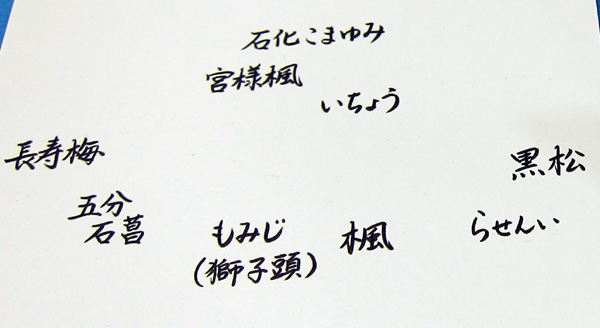 石化こまゆみ
宮様楓
いちょう
長寿梅
黒松
五分
石菖
もみじ
(獅子頭)
楓
らせんい